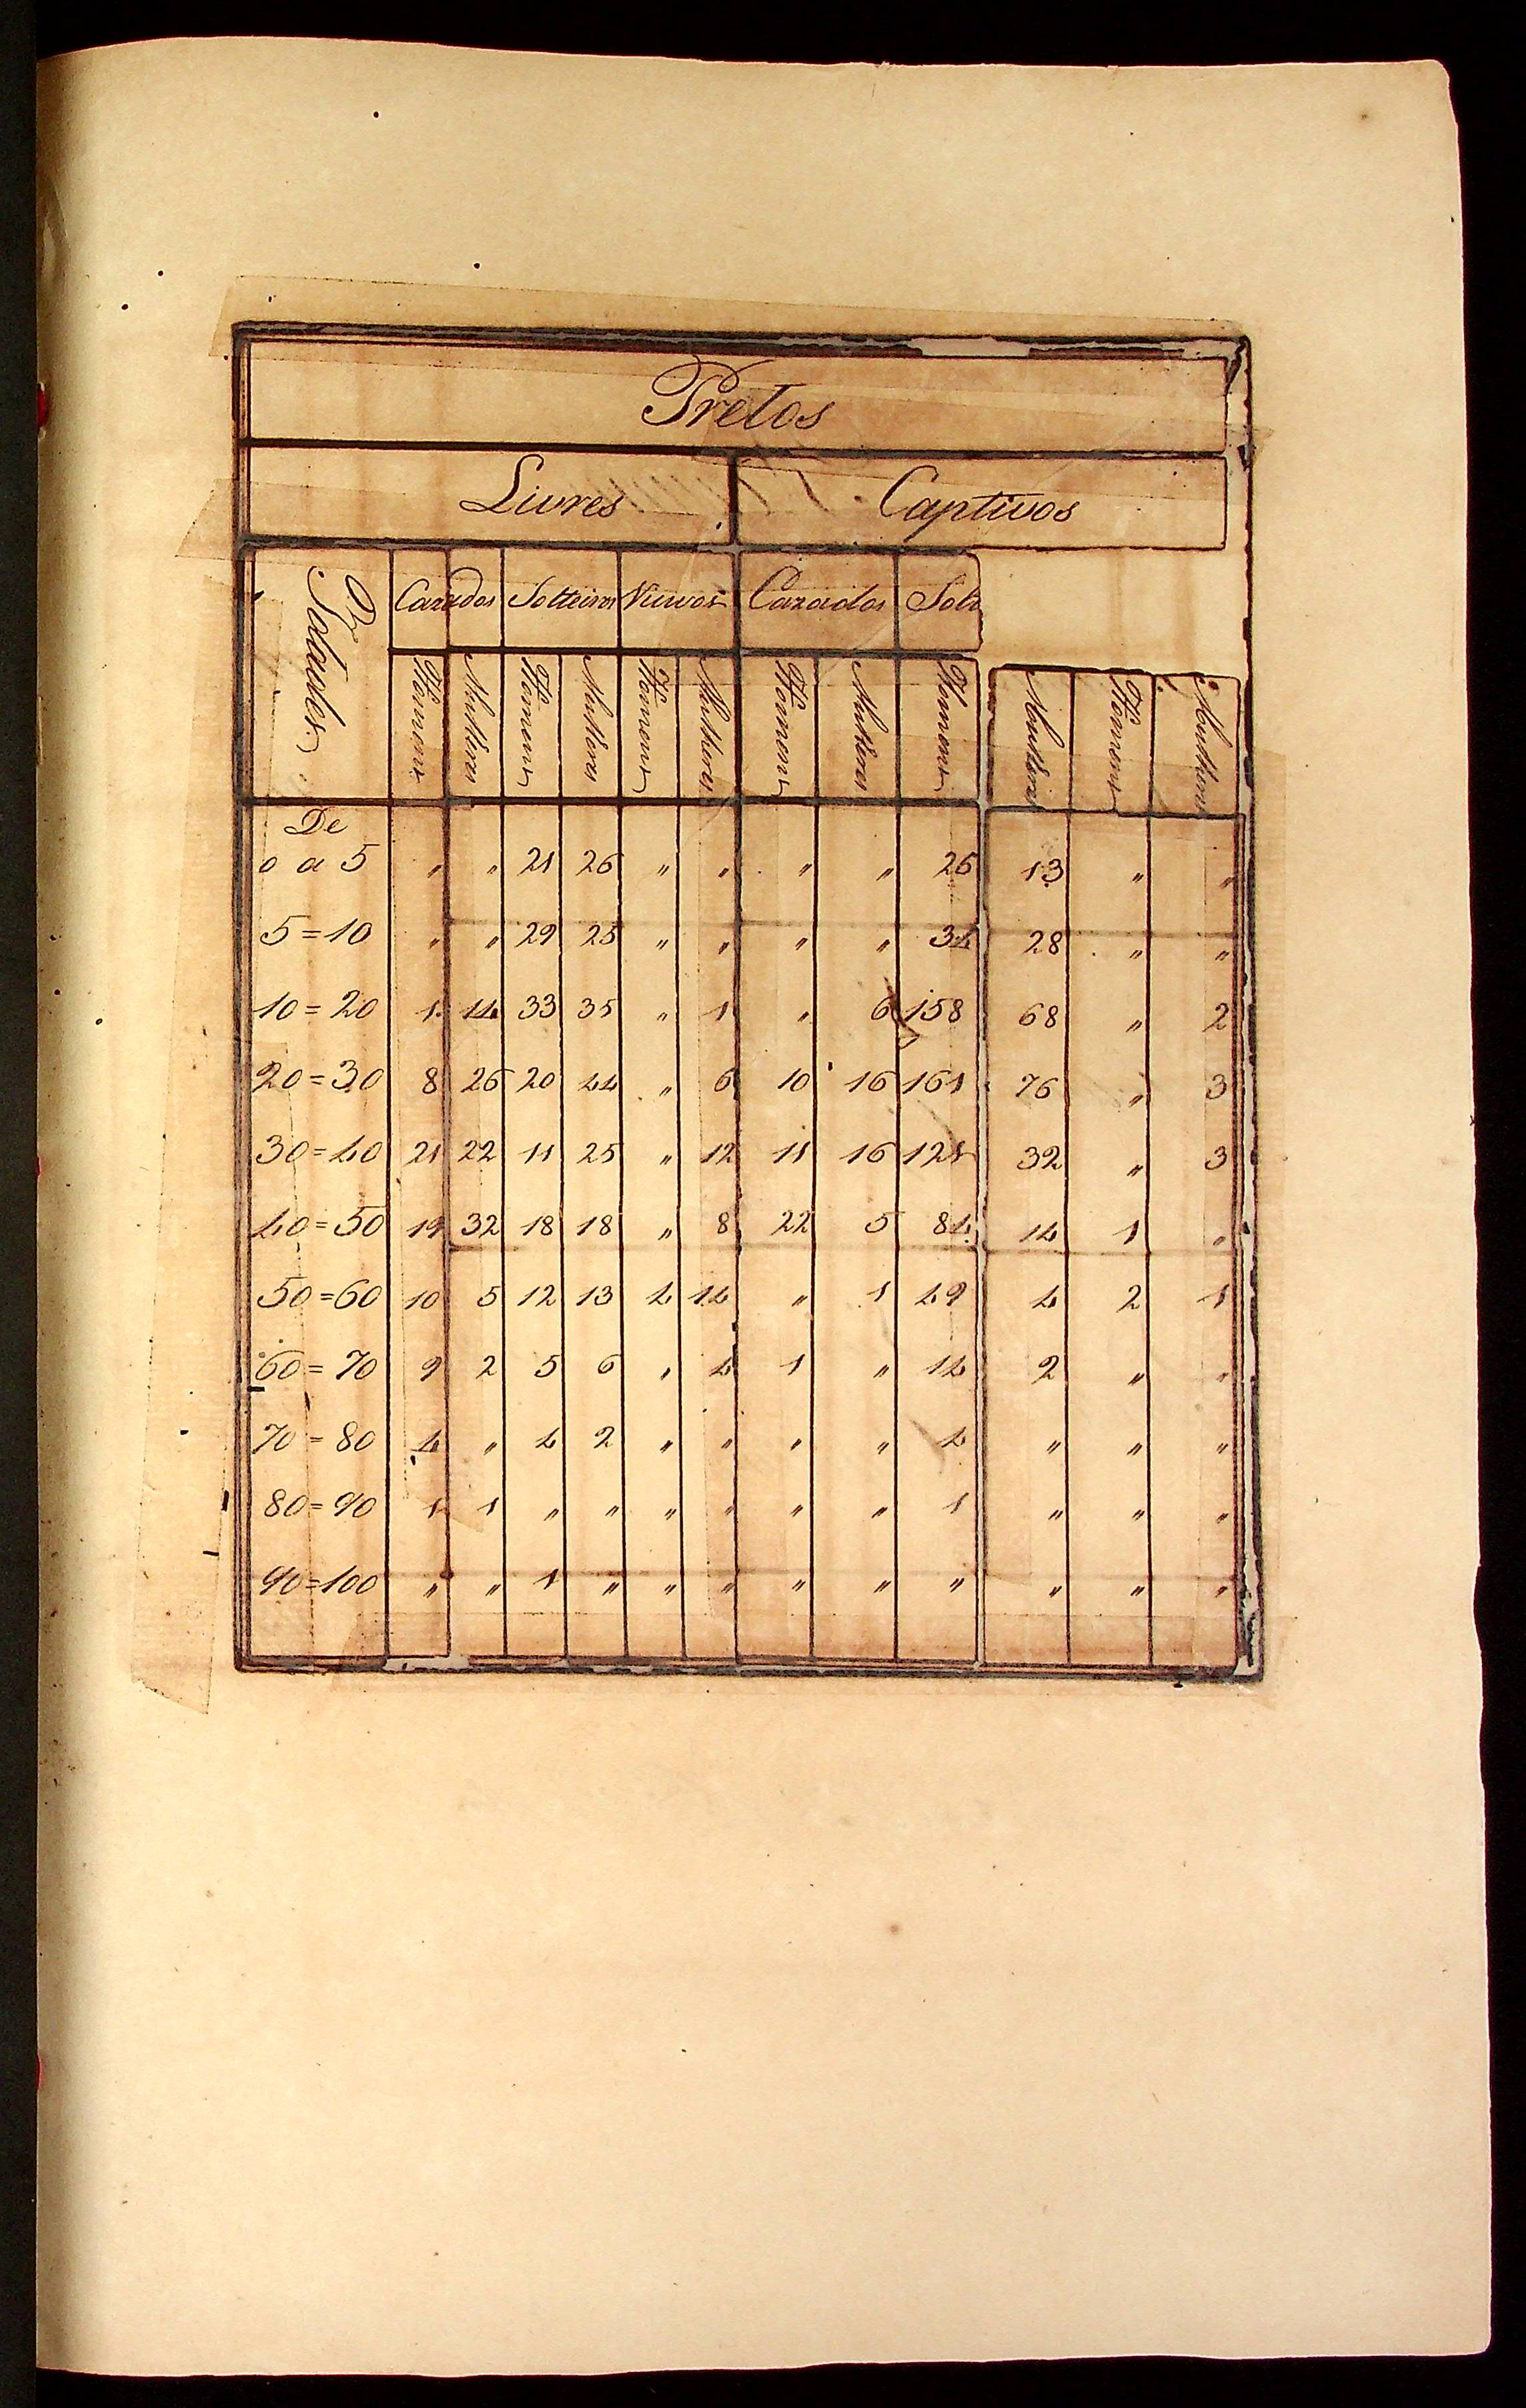 Pretos
Livres Captivos
Idades Cazados Solteiros Viuvos Cazados Solt
Homens Mulheres Homens Mulheres Homens Mulheres Homens Mulheres Homens Mulheres Homens Mulheres
De
0 a 5 " " 21 26 " " " " 26 13 " "
5=10 " " 29 25 " " " " 34 28 " "
10=20 1 14 33 35 " 1 " 6 158 68 " 2
20=30 8 26 20 44 " 6 10 16 161 76 " 3
30=40 21 22 11 25 " 12 11 16 121 32 " 3
40=50 19 32 18 18 " 8 22 5 84 14 1 "
50=60 10 5 12 13 4 14 " 1 49 4 2 1
60=70 9 2 5 6 " 4 1 " 14 2 " "
70=80 4 " 4 2 " " " " 4 " " "
80=90 1 1 " " " " " " 1 " " "
90=100 " " 1 " " " " " " " " "